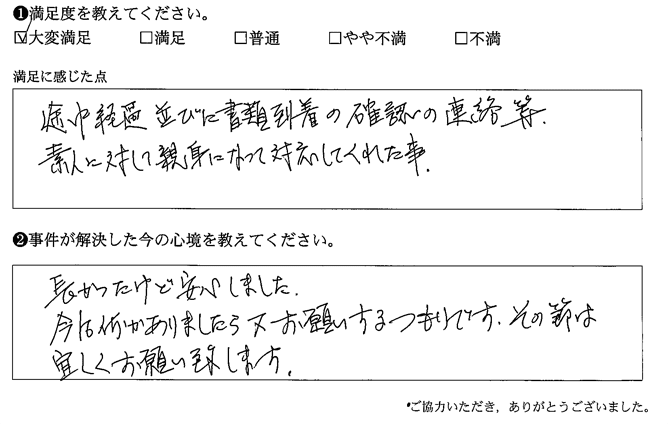 ❶満足度を教えてください。
☑大変満足 □満足 □普通 □やや不満 □不満
満足に感じた点
途中経過並びに書類到着の確認の連絡等.
素人に対して親身になって対応してくれた事.
❷事件が解決した今の心境を教えてください。
長かったけど安心しました.
今后何かありましたら又お願いするつもりです. その節は
宜しくお願い致します.
*ご協力いただき，ありがとうございました。